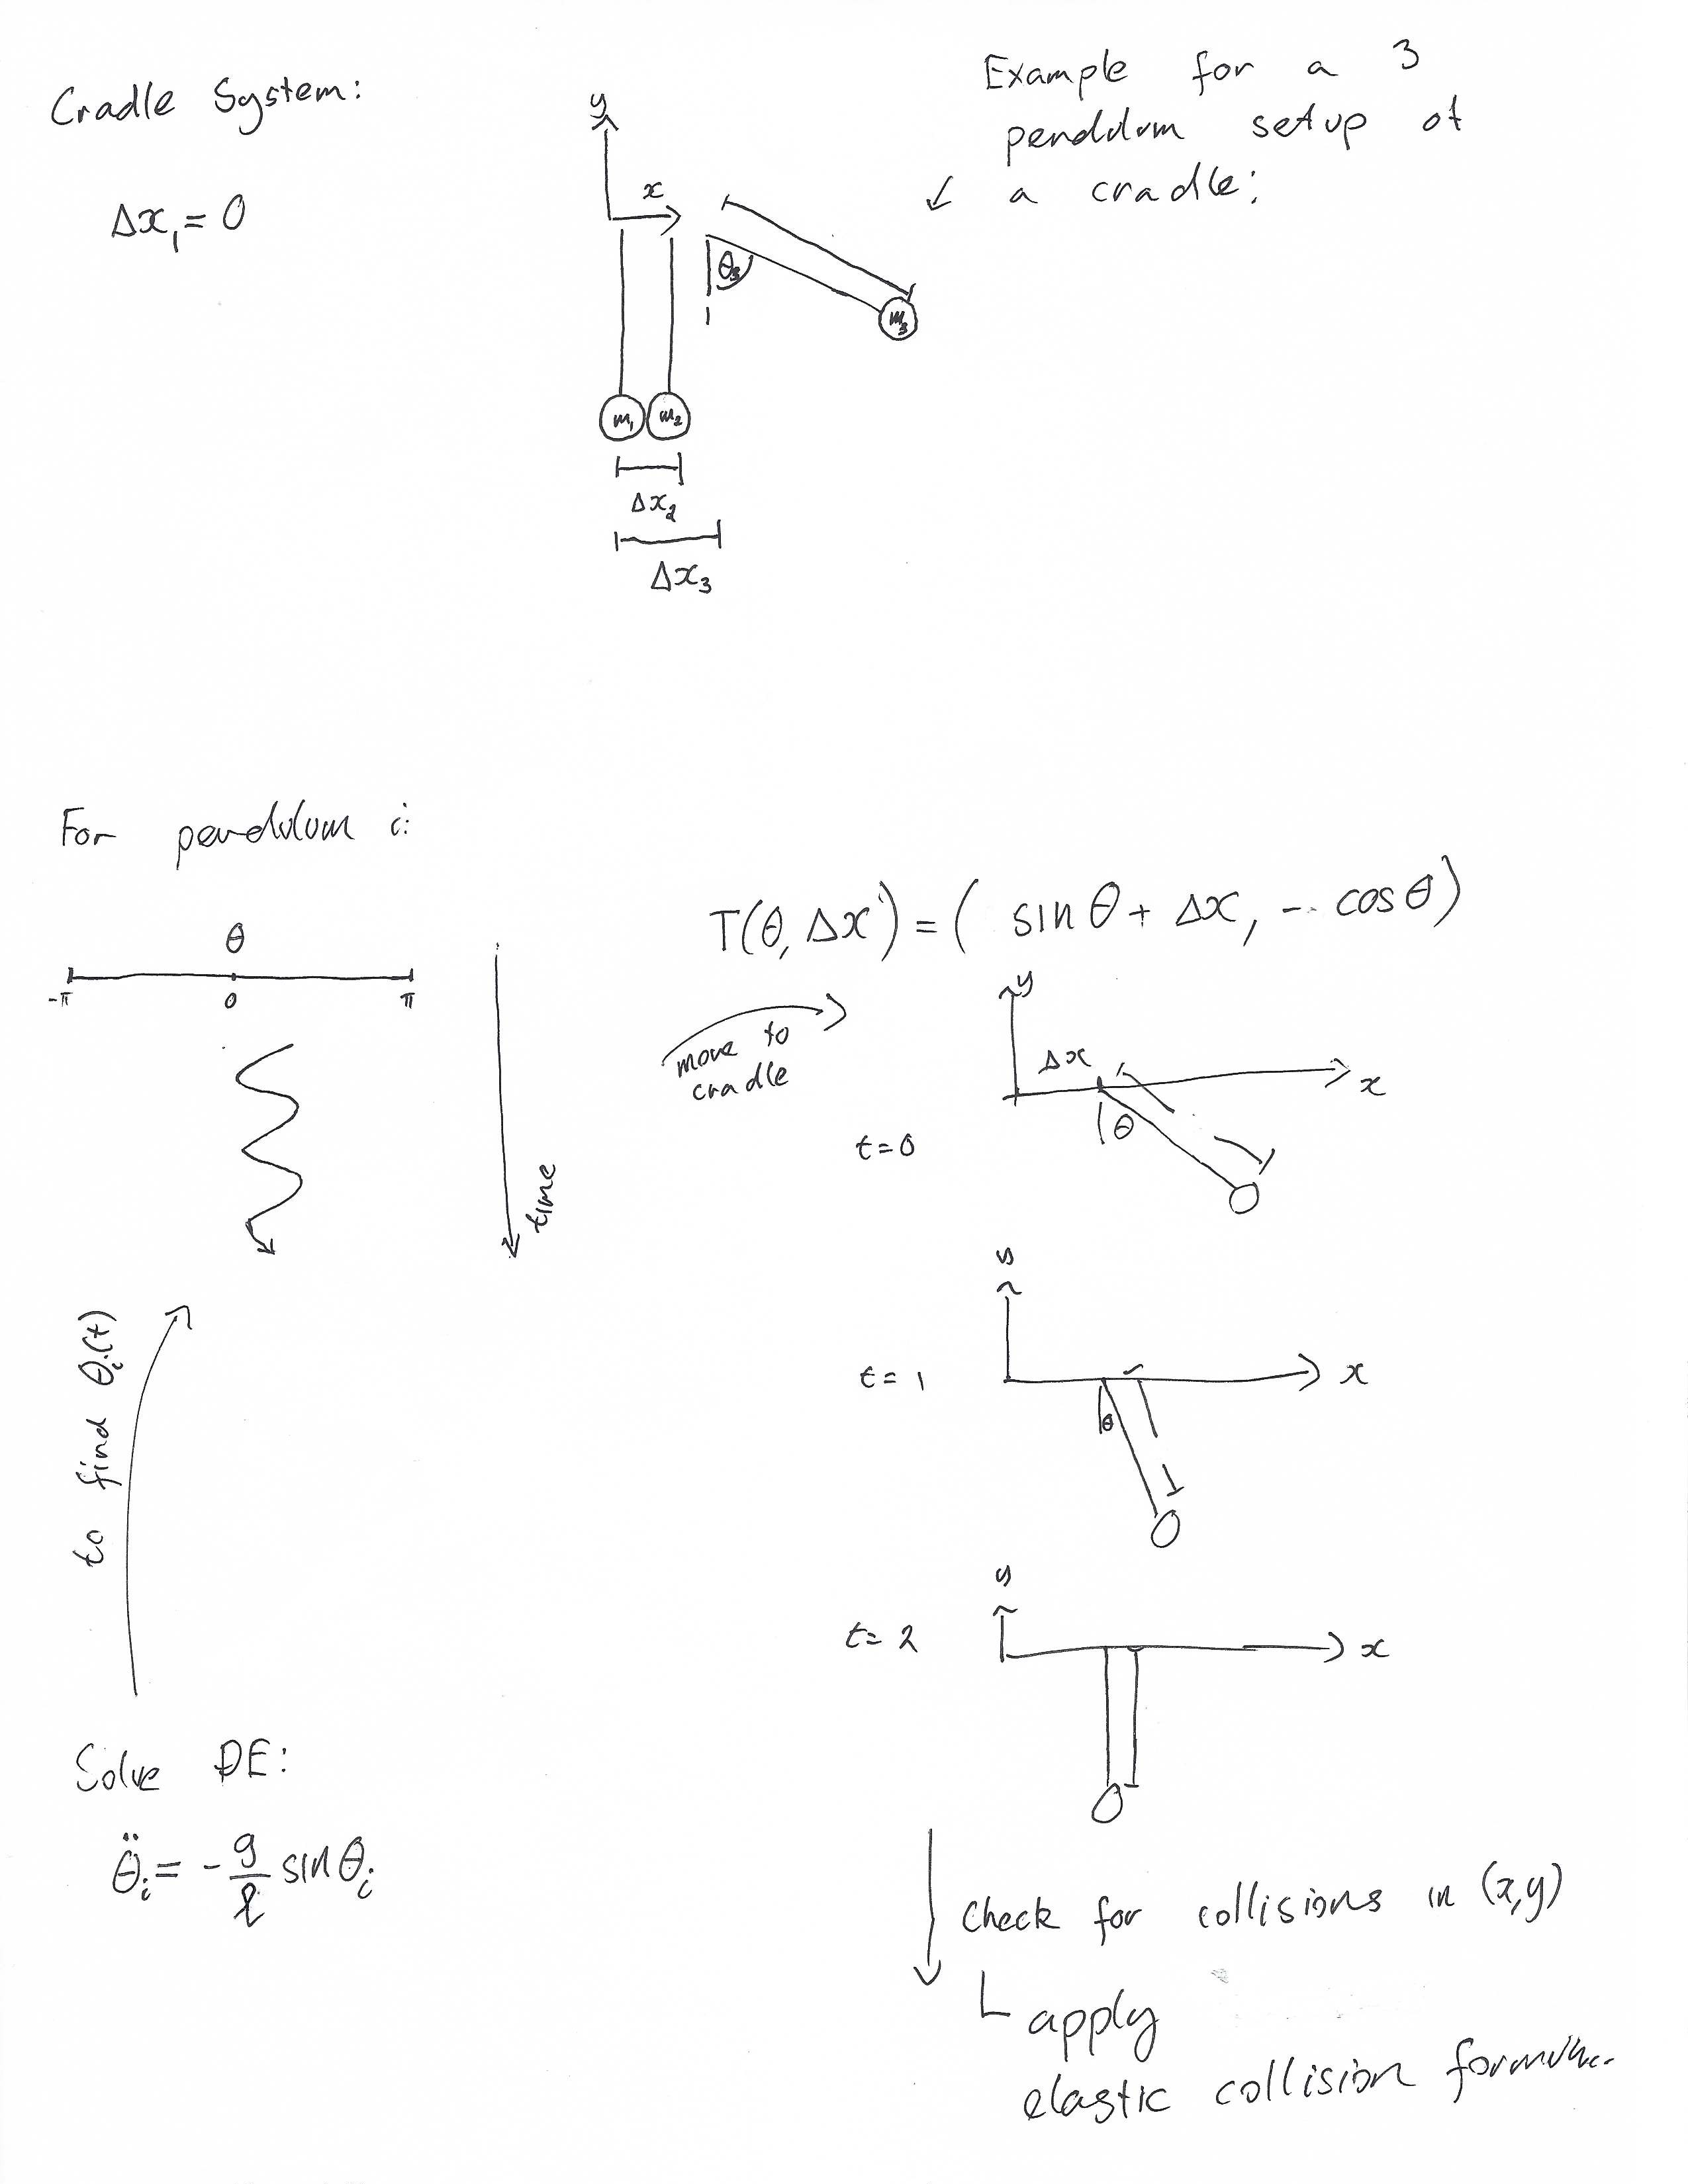 Cradle System:
Δx₁ = 0
Example for a 3
pendulum setup of
a cradle:
y
x
θ₃
m₃
m₁ m₂
Δx₂
Δx₃
For pendulum i:
θ
-π 0 π
time
to find θᵢ(t)
Solve DE:
θ̈ᵢ = - g/l sin θᵢ
T(θ, Δx) = ( sin θ + Δx, - cos θ)
move to
cradle
y
Δx
x
θ
t=0
y
t= 1
x
θ
y
t= 2
x
Check for collisions in (x,y)
apply
elastic collision formula